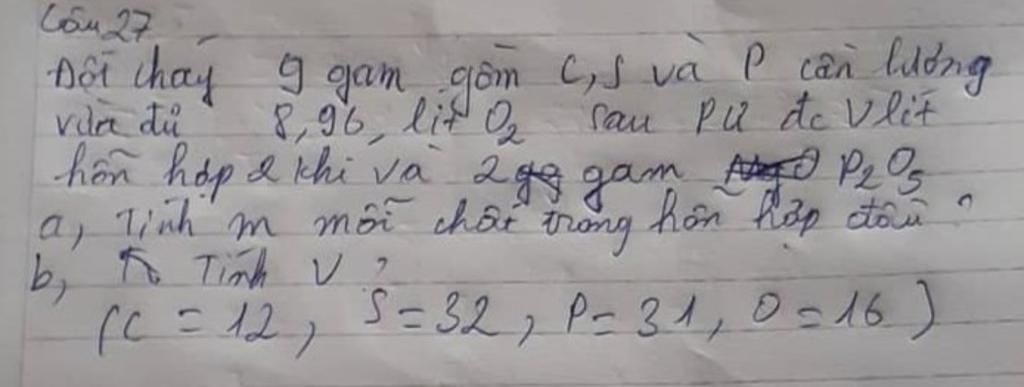 Câu 27
Đốt cháy 9 gam gồm C, S và P cần lường
vừa đủ 8,96, lít O2 sau PƯ đc V lít
hỗn hợp 2 khí và 2 gam P2O5
a, Tính m mỗi chất trong hỗn hợp đầu ?
b, Tính V ?
(C = 12, S = 32, P = 31, O = 16)